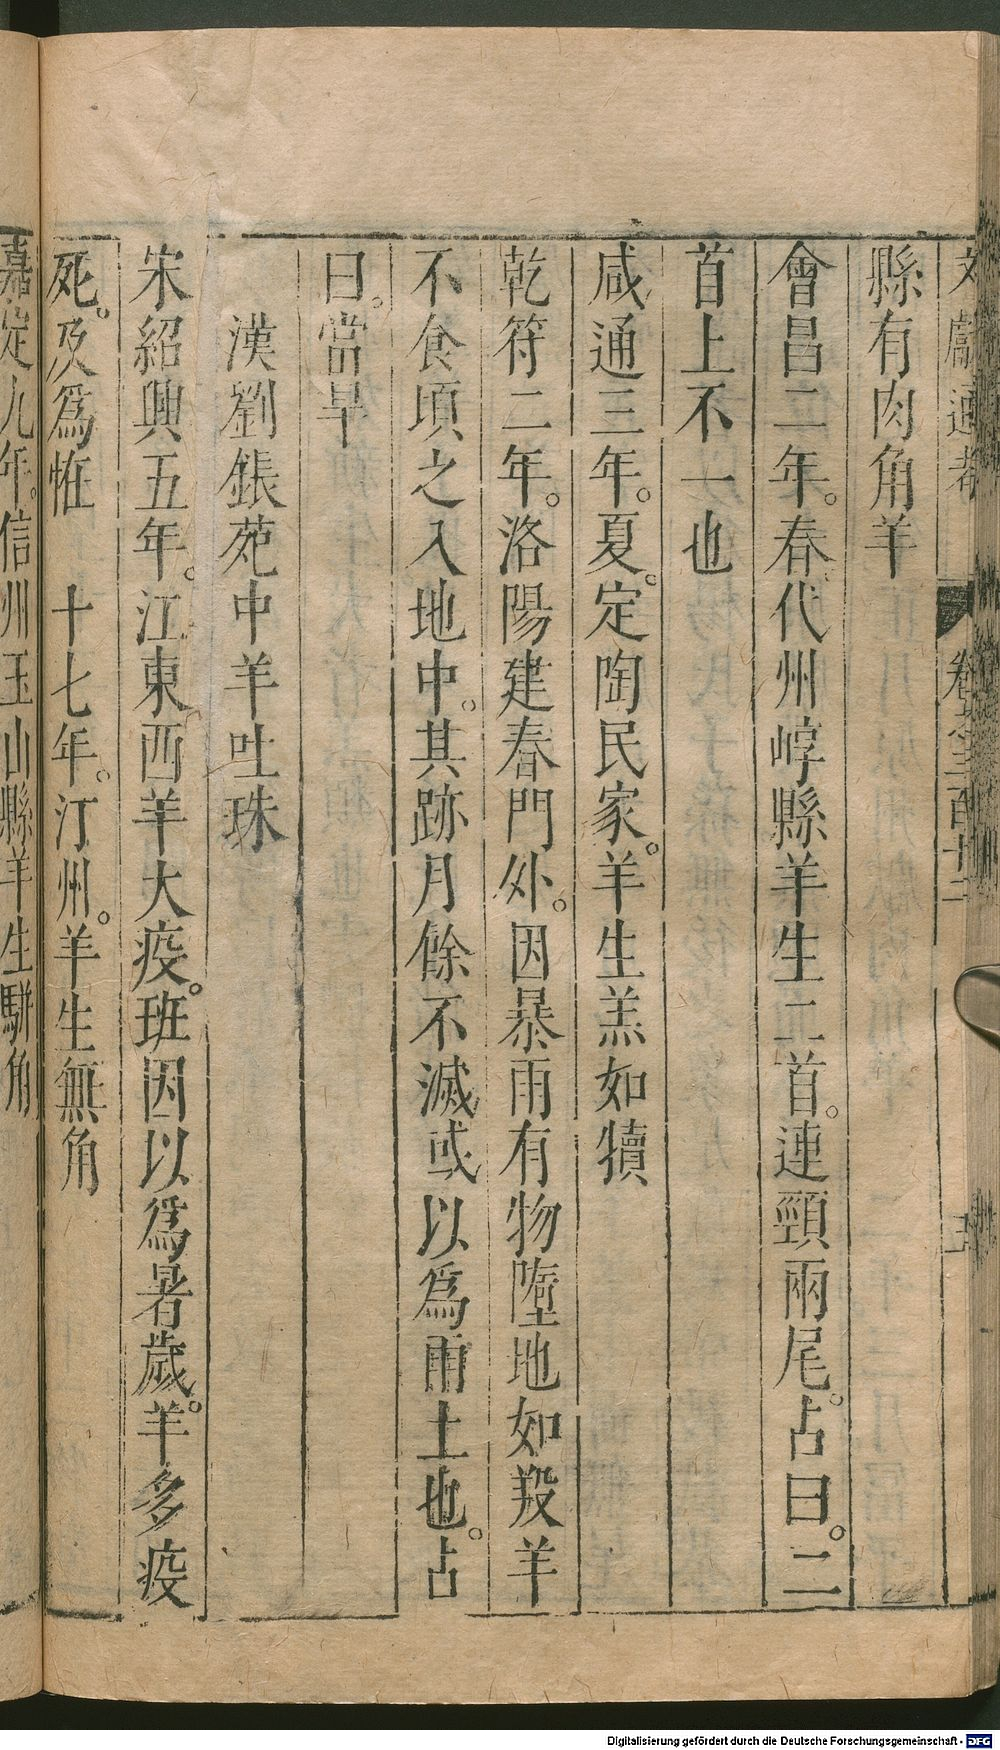 文獻通考 卷之三百十二 五
縣有肉角羊
會昌二年。春代州崞縣羊生二首。連頸兩尾。占曰。二
首上不一也
咸通三年。夏。定陶民家。羊生羔如犢
乾符二年。洛陽建春門外。因暴雨有物墮地如羖羊
不食頃之入地中。其跡月餘不滅或以爲雨土也。占
曰。當旱
漢劉鋹苑中羊吐珠
宋紹興五年。江東西羊大疫。班因以爲暑歲。羊多疫
死。及爲恠 十七年。汀州。羊生無角
嘉定九年。信州玉山縣羊生駢角
Digitalisierung gefördert durch die Deutsche Forschungsgemeinschaft - DFG